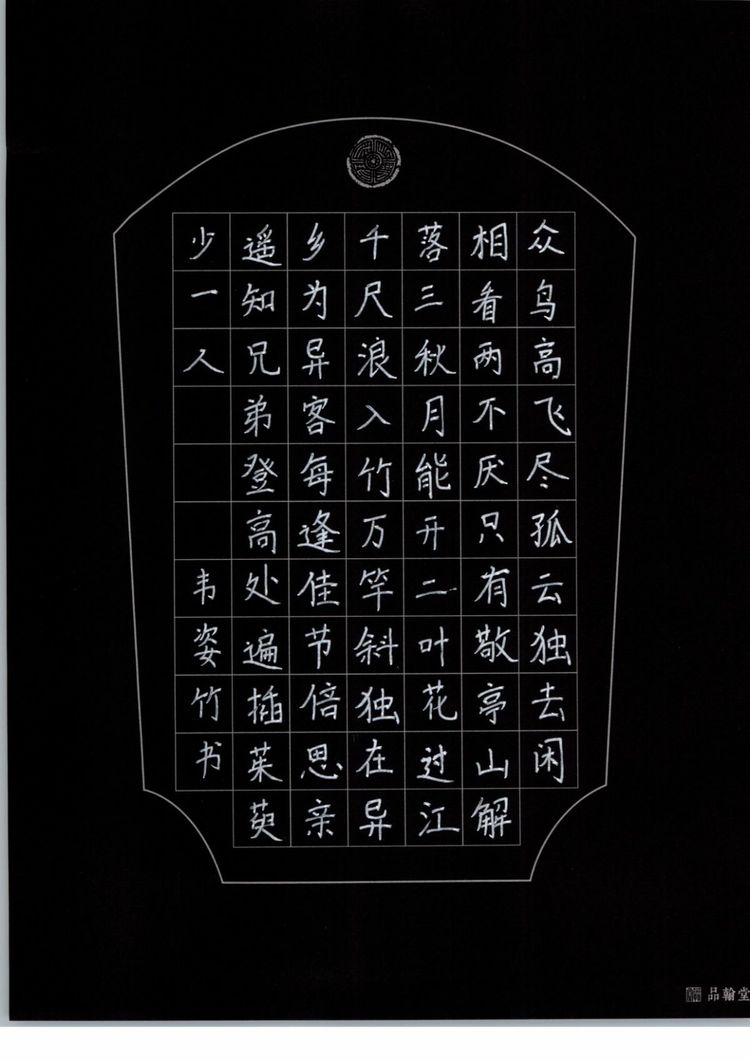 众鸟高飞尽孤云独去闲
相看两不厌只有敬亭山解
落三秋月能开二叶花过江
千尺浪入竹万竿斜独在异
乡为异客每逢佳节倍思亲
遥知兄弟登高处遍插茱萸
少一人
韦姿竹书
品翰堂